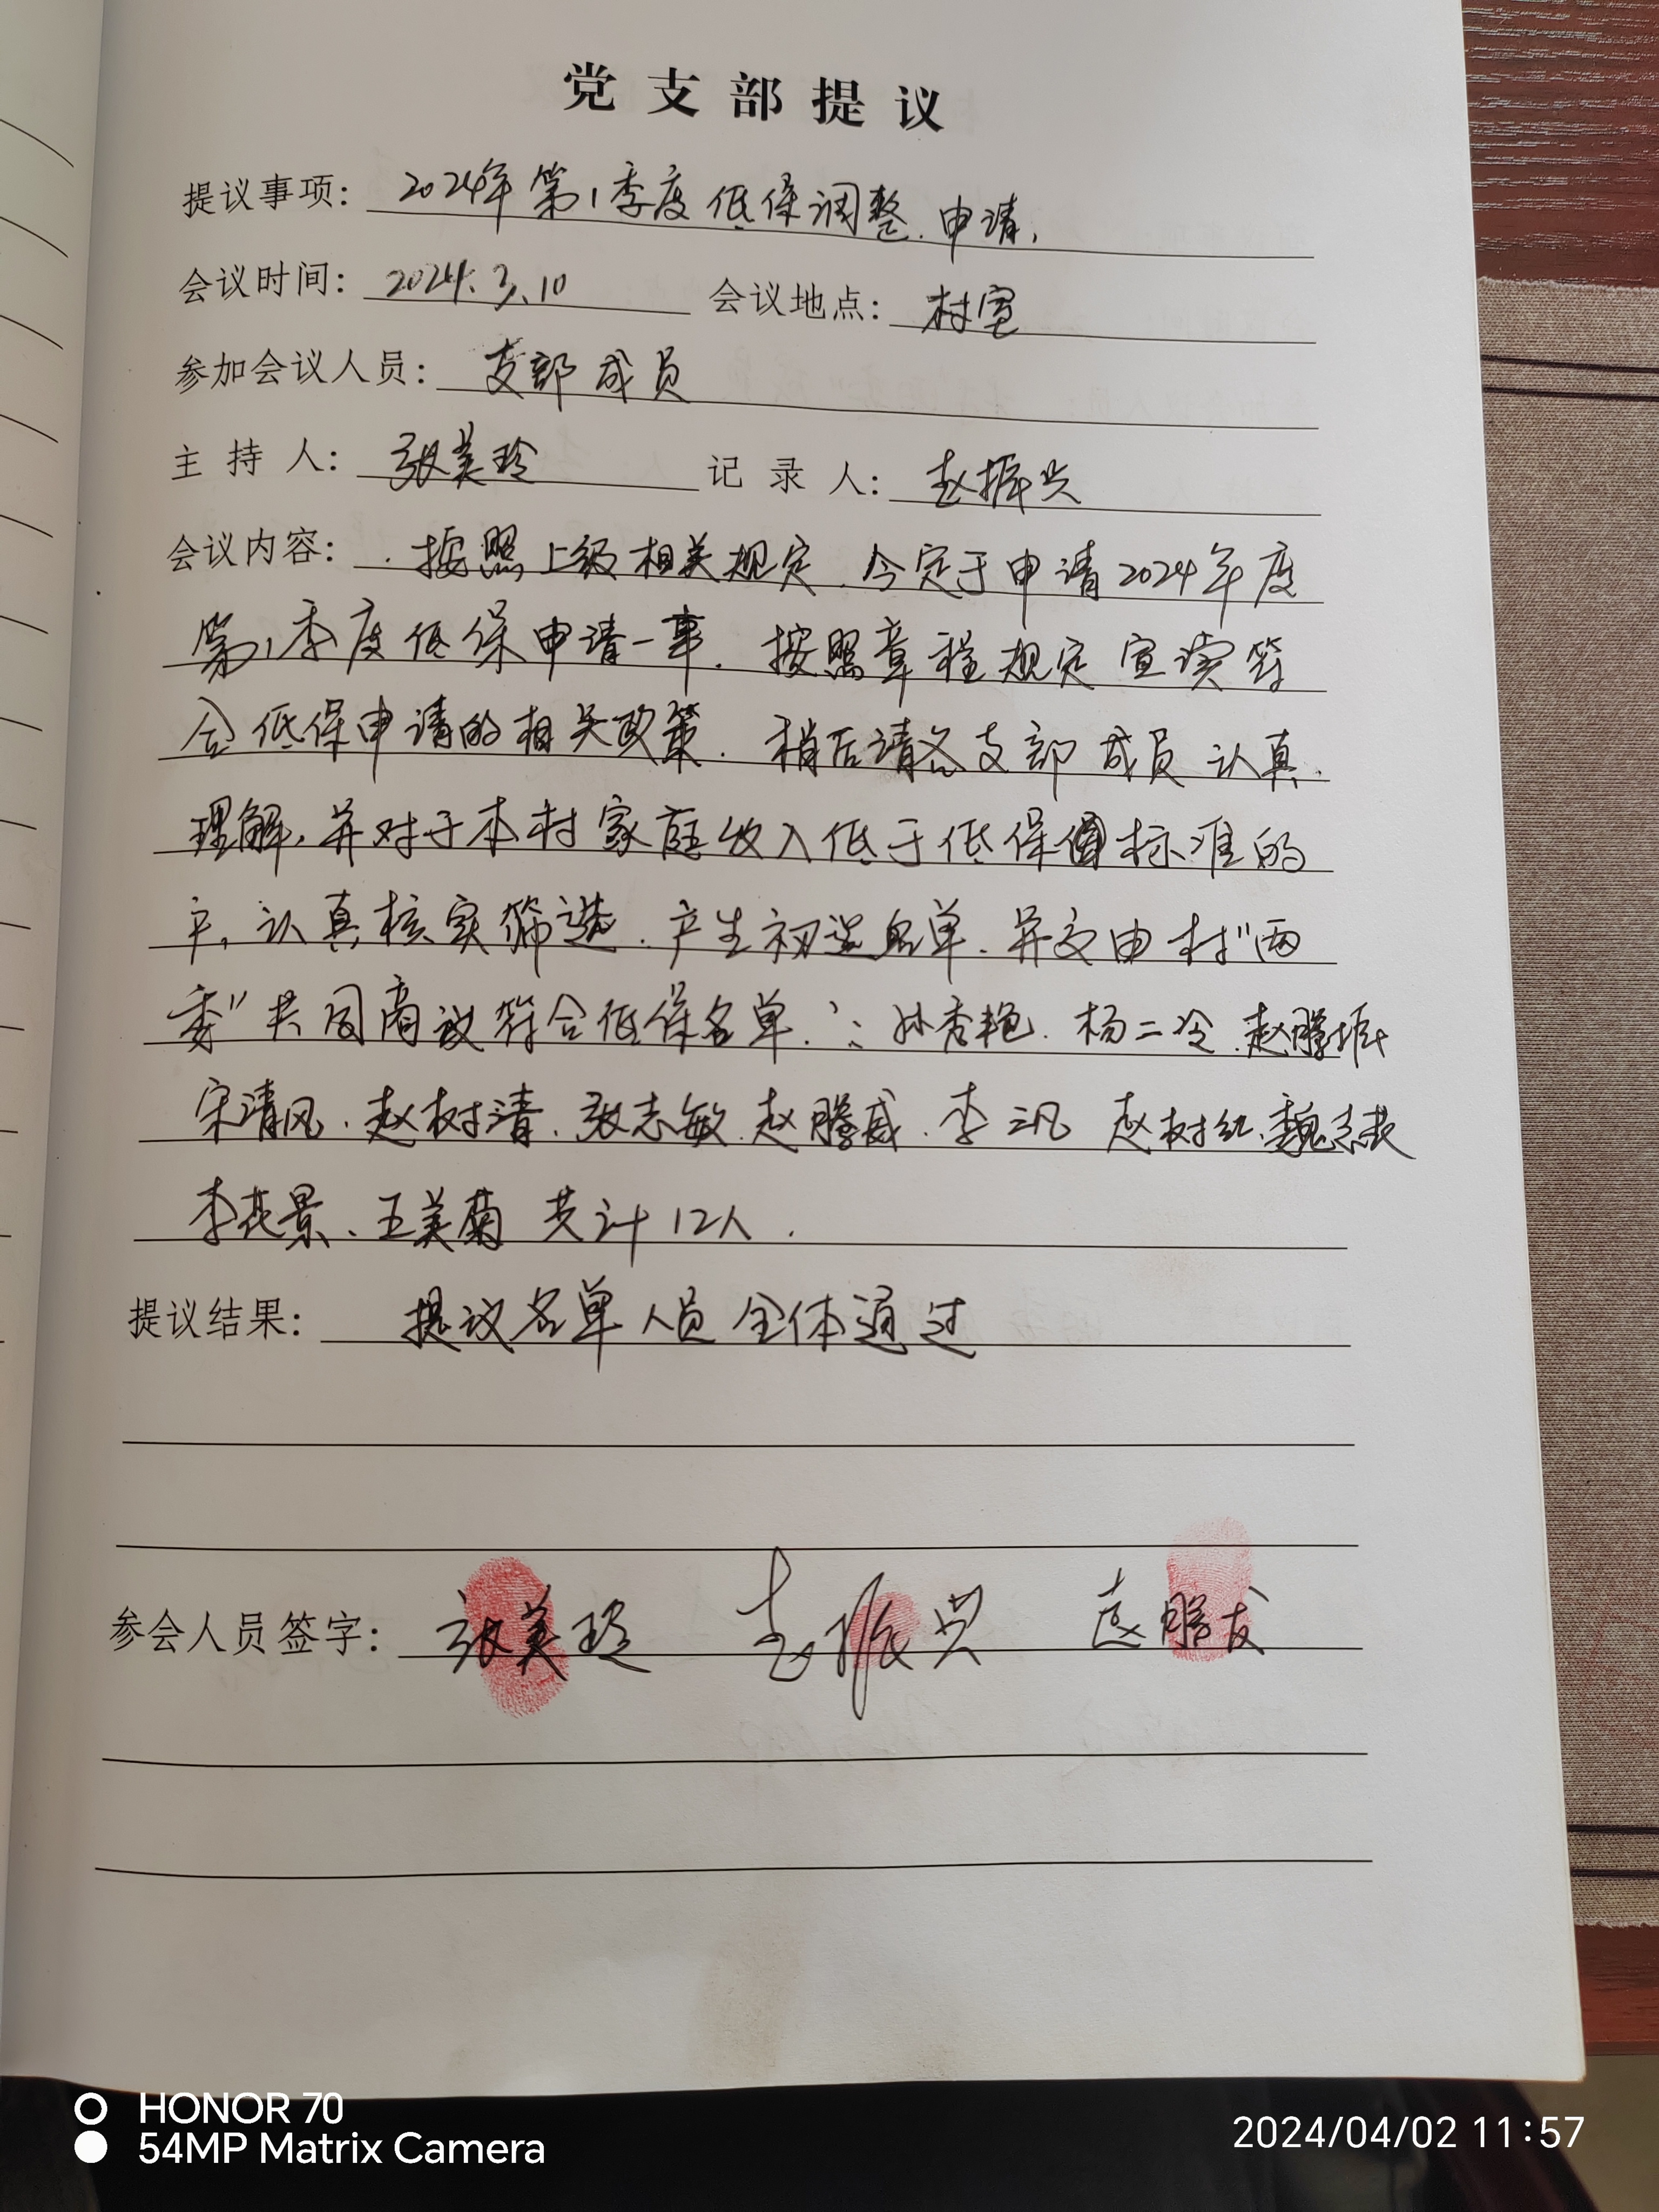 党支部提议
提议事项：2024年第1季度低保调整.申请,
会议时间：2024.3.10 会议地点：村室
参加会议人员：支部成员
主持人：张美玲 记录人：赵振兴
会议内容：.按照上级相关规定.今定于申请2024年度
第1季度低保申请一事.按照章程规定宣读符
合低保申请的相关政策.稍后请各支部成员认真.
理解,并对于本村家庭收入低于低保标准的
户,认真核实筛选.产生初选名单.并交由村"两
委"共同商议符合低保名单.:孙秀艳.杨二冷.赵腾
宋清风.赵树清.张志敏.赵腾威.李三凤 赵树红.魏志
李花景、王美菊 共计12人.
提议结果：提议名单人员全体通过
参会人员签字：张美玲 赵振兴 赵腾
HONOR 70
54MP Matrix Camera
2024/04/02 11:57